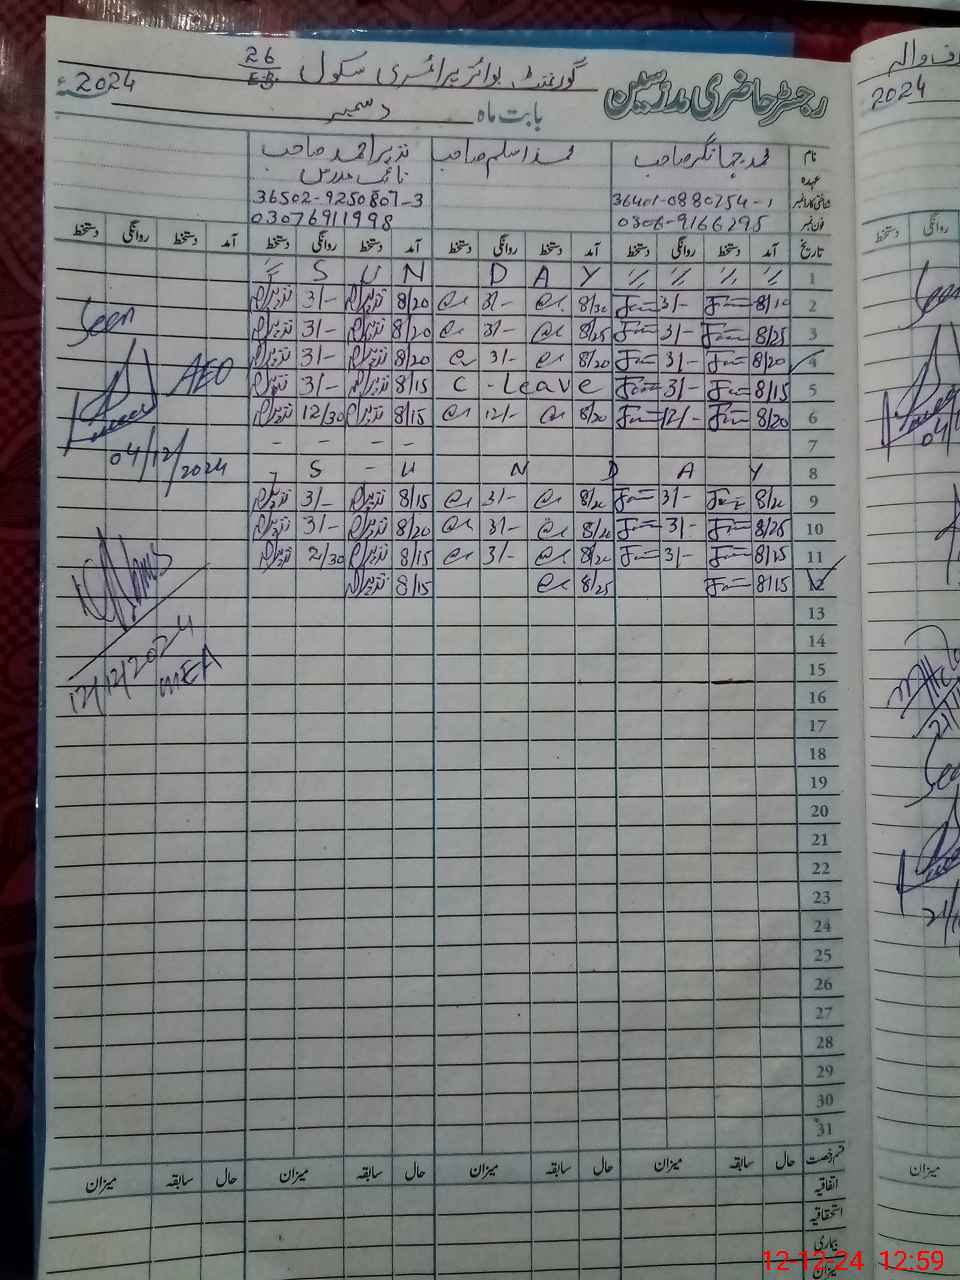 رجسٹر حاضری مدرسین گورنمنٹ بوائز پرائمری سکول 26/EB 2024ء
بابت ماہ دسمبر
نام محمد جہانگیر صاحب محمد اسلم صاحب نذیر احمد صاحب
عہدہ نائب مدرس
شناختی کارڈ نمبر 36401-0880754-1 36502-9250807-3
فون نمبر 0306-9166295 03076911998
تاریخ آمد دستخط روانگی دستخط آمد دستخط روانگی دستخط آمد دستخط روانگی دستخط آمد دستخط روانگی دستخط
1 S U N D A Y
2 8/10 3/- 8/30 3/- 8/20 نذیر 3/- نذیر
3 8/25 3/- 8/25 3/- 8/20 نذیر 3/- نذیر
4 8/20 3/- 8/20 3/- 8/20 نذیر 3/- نذیر
5 8/15 3/- C - Leave 8/15 نذیر 3/- نذیر
6 8/20 12/- 8/20 12/- 8/15 نذیر 12/30 نذیر
7 - - - -
8 S - U N D A Y
9 8/20 3/- 8/20 3/- 8/15 نذیر 3/- نذیر
10 8/25 3/- 8/20 3/- 8/20 نذیر 3/- نذیر
11 8/15 3/- 8/20 3/- 8/15 نذیر 2/30 نذیر
12 8/15 8/25 8/15 نذیر
13
14
15
16
17
18
19
20
21
22
23
24
25
26
27
28
29
30
31
Seen
AEO
04/12/2024
12/12/2024
MEA
قسم رخصت حال سابقہ میزان حال سابقہ میزان حال سابقہ میزان حال سابقہ میزان
اتفاقیہ
استحقاقیہ
بیماری
میزان
2024
روانگی دستخط
Seen
میزان
12-12-24 12:59